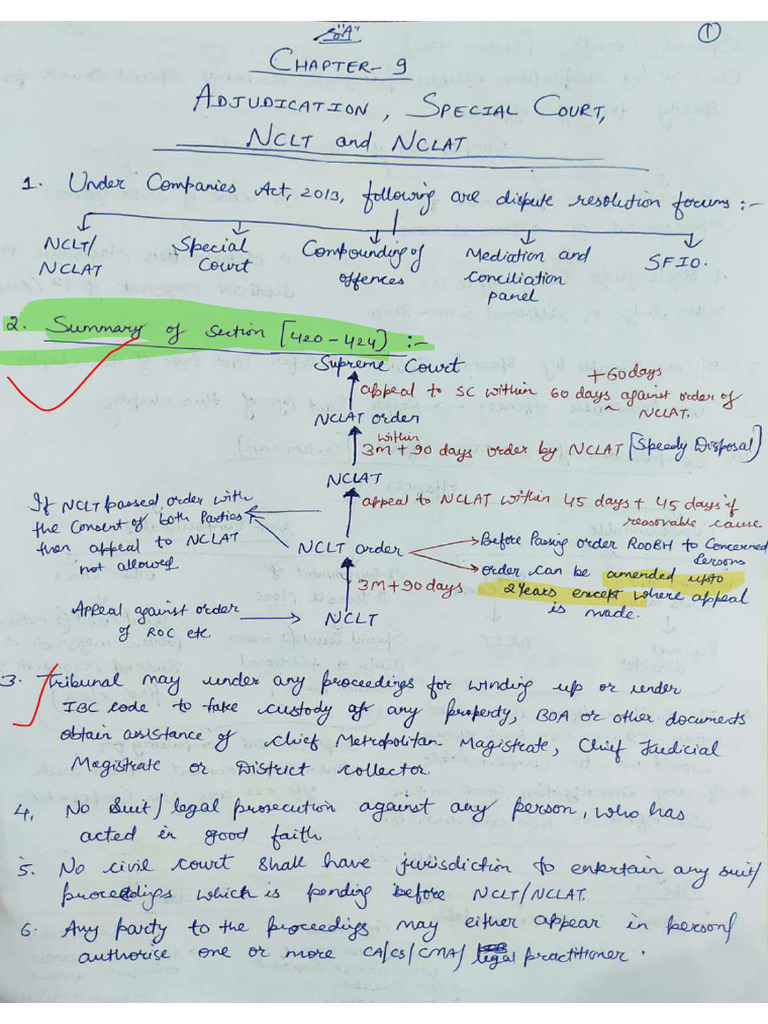 "A"
①
CHAPTER-9
ADJUDICATION, SPECIAL COURT,
NCLT and NCLAT
1. Under Companies Act, 2013, following are dispute resolution forums :-
NCLT/
NCLAT
Special
Court
Compounding of
offences
Mediation and
conciliation
panel
SFIO.
2. Summary of section [420-424] :-
Supreme Court
+60days
appeal to SC within 60 days against order of
~ NCLAT.
NCLAT order
within
3M+90 days order by NCLAT [Speedy Disposal]
NCLAT
appeal to NCLAT within 45 days + 45 days if
reasonable cause
If NCLT passed order with
the Consent of both Parties
then appeal to NCLAT
not allowed
NCLT order
Before Passing order ROOBH to Concerned
Persons
order can be amended upto
2 Years except where appeal
is made.
3M+90 days
Appeal against order
of ROC etc.
NCLT
3. Tribunal may under any proceedings for winding up or under
IBC code to take custody of any property, BOA or other documents
obtain assistance of Chief Metropolitan Magistrate, Chief Judicial
Magistrate or District collector.
4. No suit/legal prosecution against any person, who has
acted in good faith.
5. No civil court shall have jurisdiction to entertain any suit/
proceedings which is pending before NCLT/NCLAT.
6. Any party to the proceedings may either appear in person/
authorise one or more CA/CS/CMA/ legal practitioner.